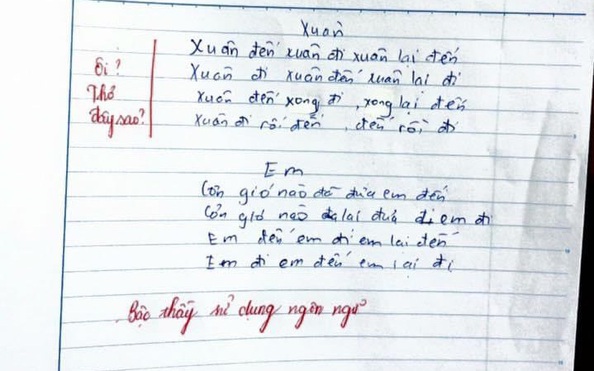 Xuân
Xuân đến xuân đi xuân lại đến
Xuân đi xuân đến xuân lại đi
Xuân đến xong đi, xong lại đến
Xuân đi rồi đến, đến rồi đi
Ơi?
Thơ
đây sao?
Em
Cơn gió nào đã đưa em đến
Cơn gió nào lại đưa em đi
Em đến em đi em lại đến
Em đi em đến em lại đi
Bạo thầy sử dụng ngôn ngữ